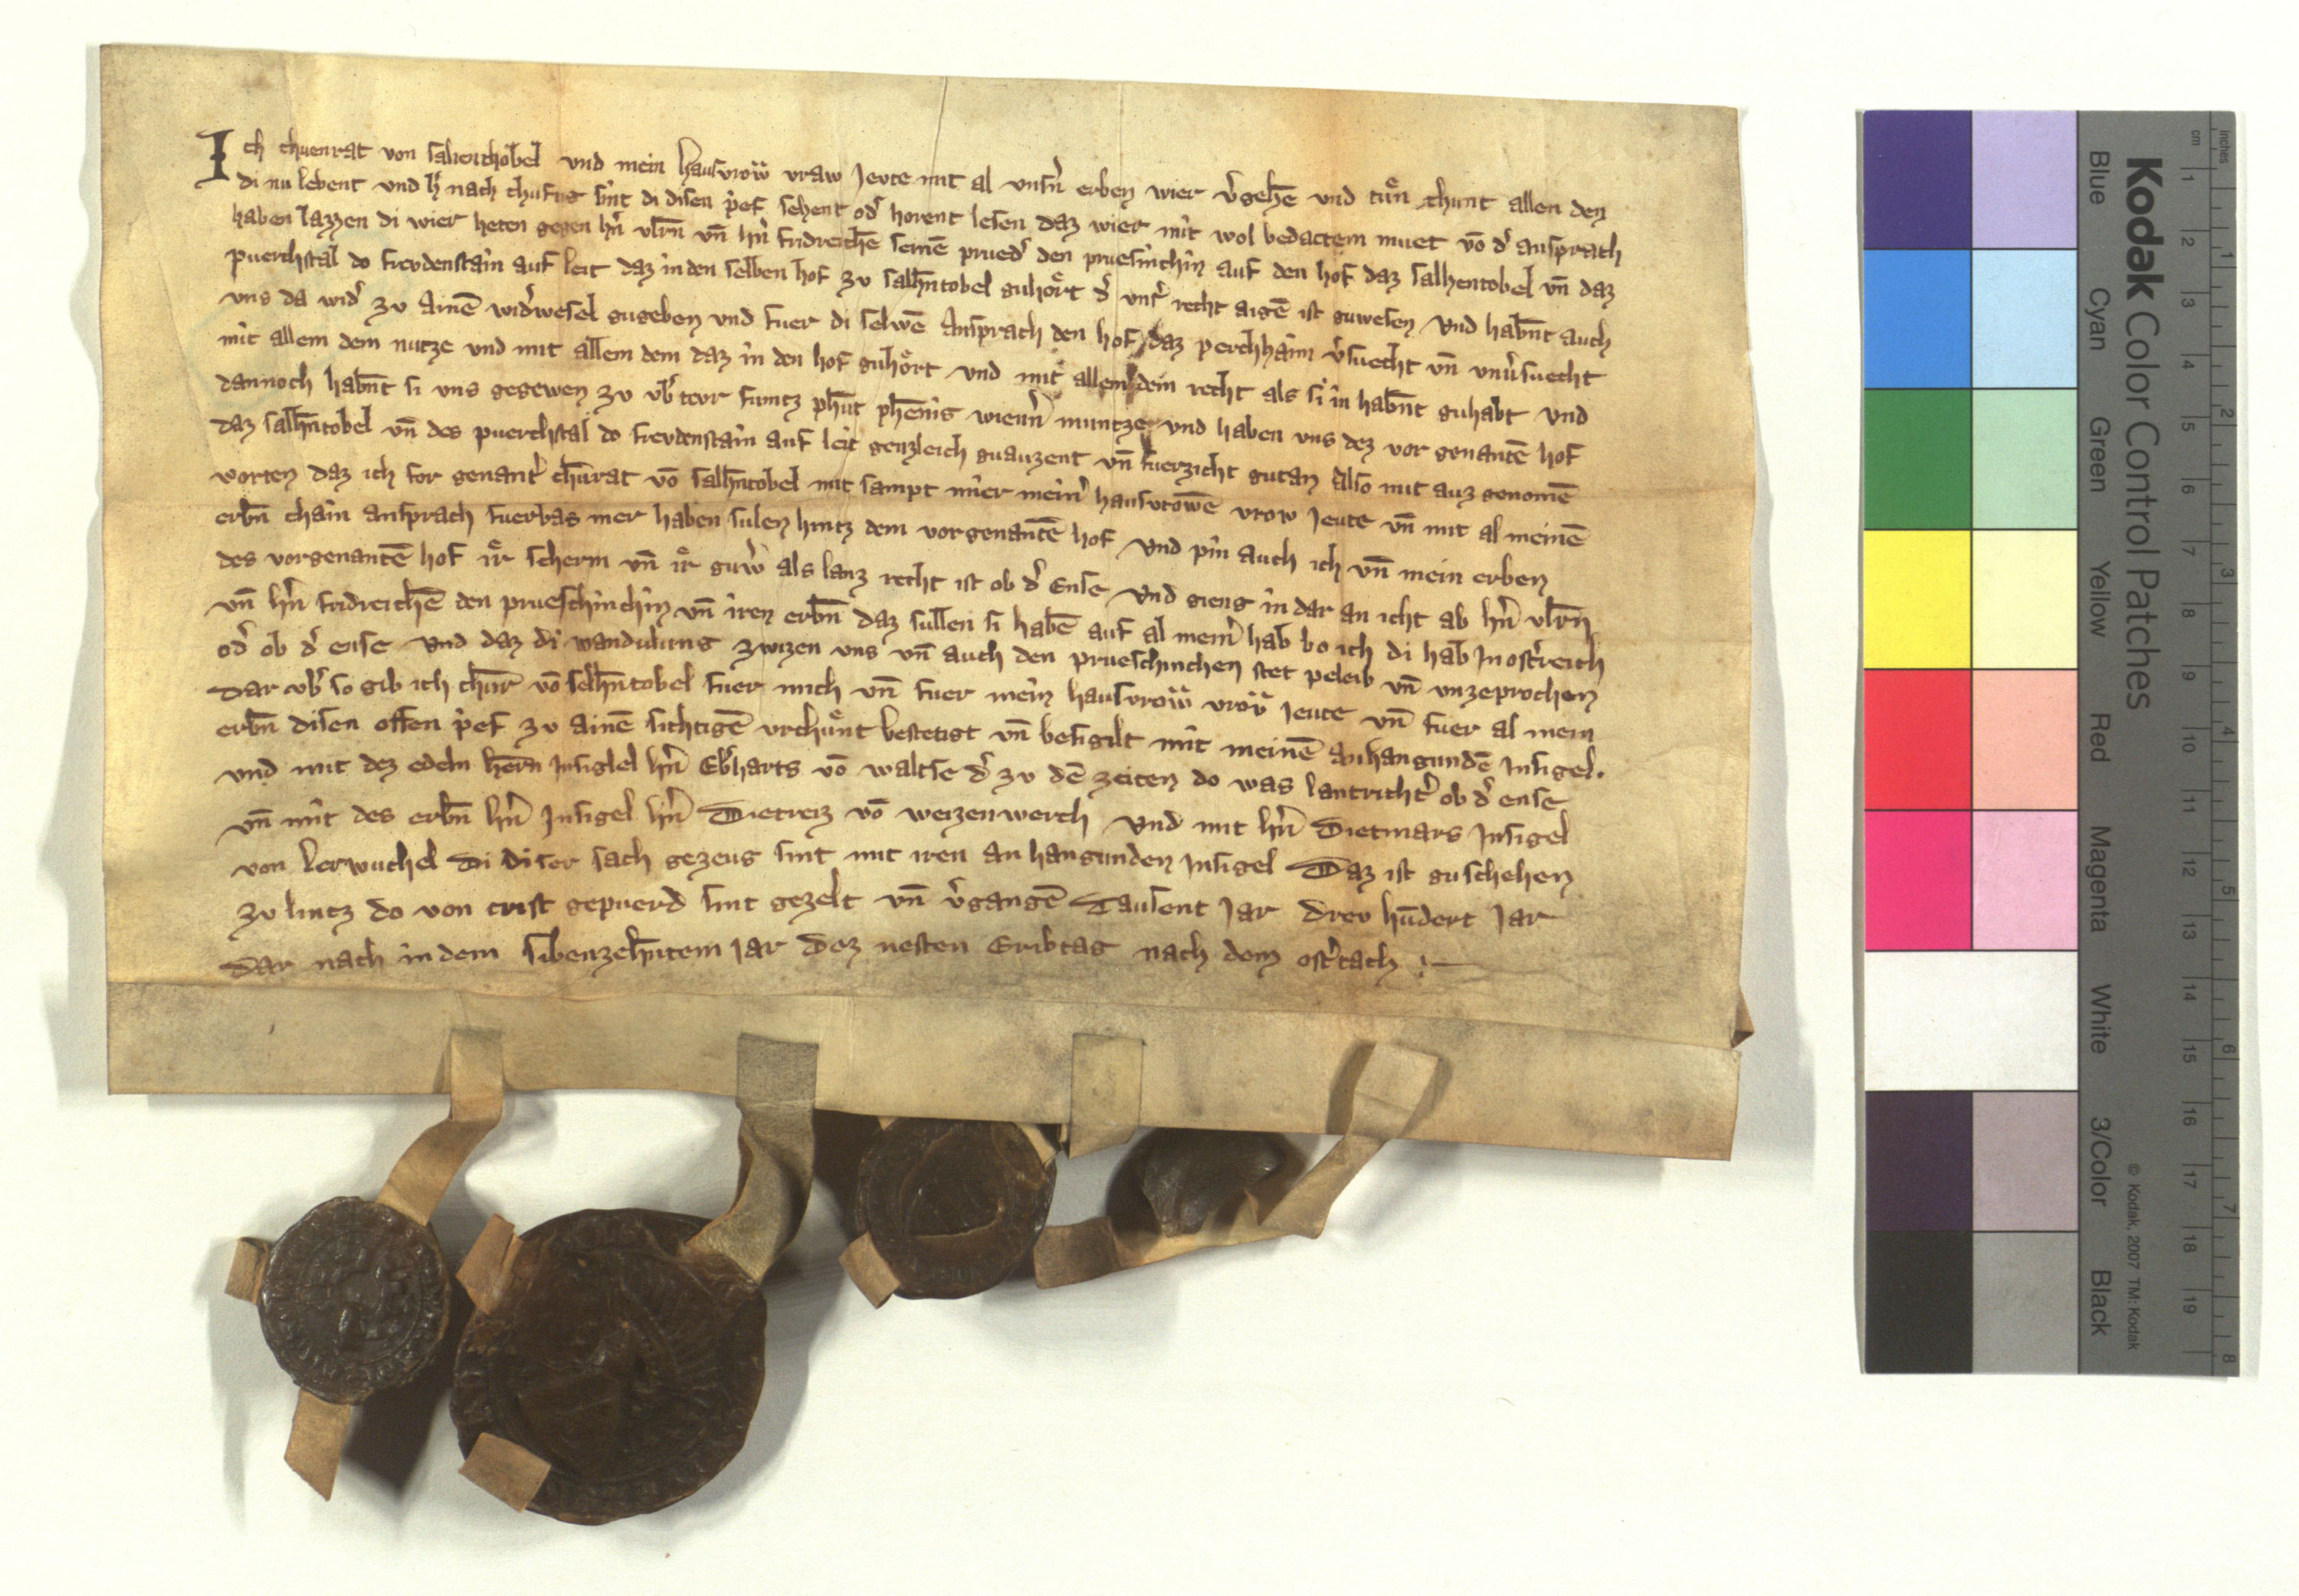 Ich chuenrat von salhenchobel und mein hausvrow vraw Jevte mit al unsn̄ erben wier v̓gehē und tuͤn chunt allen den
di nu lebent und h̓ nach chuftig sint di disen p̓ef sehent od̓ horent lesen daz wier mit wol bedactem muet vō d̓ ansprach
haben lazzen di wier heten gegen hn̄ ulrn̄ un̄ hn̄ fridreichē seinē prued̓ den pruesinchin auf den hof daz salhentobel un̄ daz
puerchstal do frevdenstain auf leit daz in den selben hof zu salhn̄tobel guhoͤrt d̓ uns̓ recht aigē ist guwesen und habn̄t auch
uns da wid̓ zu ainē wid̓wesel gugeben und fuer di selwē ansprach den hof daz perchhaim v̓suecht un̄ unv̓suecht
mit allem dem nutze und mit allem dem daz in den hof guhoͤrt und mit allem dem recht als si in habn̄t guhabt und
dannoch habn̄t si uns gegewen zu ub̓tevr fumtz phūt phēnig wienn̓ muntze und haben uns dez vor genantē hof
daz salhn̄tobel un̄ des puerchstal do frevdenstain auf leit genzleich guauzent un̄ fuerzicht gutan also mit auz genomē
worten daz ich for genant̓ chūrat vō salhn̄tobel mit sampt mier mein̓ hausvrowē vrow Jevte un̄ mit al meinē
erbn̄ chain ansprach fuerbas mer haben sulen hintz dem vorgenantē hof und pin auch ich un̄ mein erben
des vorgenantē hof ir̓ scherm un̄ ir̓ guw̓ als lanz recht ist ob d̓ Ense und gieng in dar an icht ab hn̄ ulrn̄
un̄ hn̄ fridreichē den prueschinchin un̄ iren erbn̄ daz sullen si habē auf al mein̓ hab bo ich di hab In ost̓reich
od̓ ob d̓ ense und daz di wandulung zwizen uns un̄ auch den prueschinchen stet peleib un̄ unzeprochen
dar ub̓ so gib ich chūr vō selhn̄tobel fuer mich un̄ fuer mein hausvrow vrow Jevte un̄ fuer al mein
erbn̄ disen offen p̓ef zu ainē sichtigē urchuͤnt bestetigt un̄ besigilt mit meinē anhangundē Insigel.
und mit dez edeln hērn Insiglel hn̄ Eb̓harts vō waltse d̓ zu dē zeiten do was lantricht̓ ob d̓ ense
un̄ mit des erbn̄ hn̄ Insigel hn̄ Dietreiz vō weizenwerch und mit hn̄ Dietmars Insigel
von lerwuchel di diser sach gezeug sint mit iren an hangunden Insigel Daz ist guschehen
zu lintz do von crist gepuerd sint gezelt un̄ v̓gangē Tausent Jar drev hūdert Jar
dar nach in dem sibenzehn̄tem Jar dez nesten Eribtag nach dem ost̓tach
Kodak Color Control Patches
© Kodak, 2007 TM: Kodak
Blue Cyan Green Yellow Red Magenta White 3/Color Black
cm 1 2 3 4 5 6 7 8 9 10 11 12 13 14 15 16 17 18 19
inches 1 2 3 4 5 6 7 8